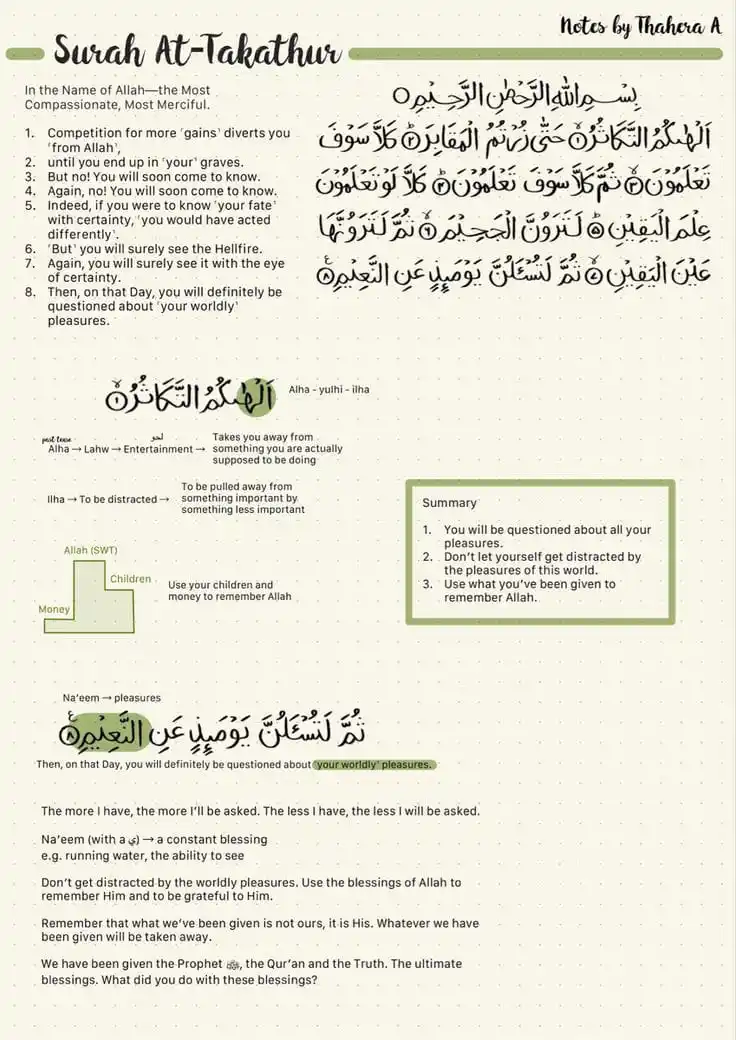 Notes by Thahera A
Surah At-Takathur
In the Name of Allah—the Most
Compassionate, Most Merciful.
1. Competition for more ˹gains˺ diverts you
˹from Allah˺,
2. until you end up in ˹your˺ graves.
3. But no! You will soon come to know.
4. Again, no! You will soon come to know.
5. Indeed, if you were to know ˹your fate˺
with certainty, ˹you would have acted
differently˺.
6. ˹But˺ you will surely see the Hellfire.
7. Again, you will surely see it with the eye
of certainty.
8. Then, on that Day, you will definitely be
questioned about ˹your worldly˺
pleasures.
بِسْمِ اللهِ الرَّحْمٰنِ الرَّحِيْمِ۝
اَلْهٰىكُمُ التَّكَاثُرُ۝١ حَتّٰى زُرْتُمُ الْمَقَابِرَ۝٢ كَلَّا سَوْفَ
تَعْلَمُوْنَ۝٣ ثُمَّ كَلَّا سَوْفَ تَعْلَمُوْنَ۝٤ كَلَّا لَوْ تَعْلَمُوْنَ
عِلْمَ الْيَقِيْنِ۝٥ لَتَرَوُنَّ الْجَحِيْمَ۝٦ ثُمَّ لَتَرَوُنَّهَا
عَيْنَ الْيَقِيْنِ۝٧ ثُمَّ لَتُسْـَٔلُنَّ يَوْمَىِٕذٍ عَنِ النَّعِيْمِ۝٨
اَلْهٰىكُمُ التَّكَاثُرُ۝١
Alha - yulhi - ilha
past tense
لهو
Alha → Lahw → Entertainment →
Takes you away from
something you are actually
supposed to be doing
Ilha → To be distracted →
To be pulled away from
something important by
something less important
Allah (SWT)
Children
Money
Use your children and
money to remember Allah
Summary
1. You will be questioned about all your
pleasures.
2. Don't let yourself get distracted by
the pleasures of this world.
3. Use what you've been given to
remember Allah.
Na'eem → pleasures
ثُمَّ لَتُسْـَٔلُنَّ يَوْمَىِٕذٍ عَنِ النَّعِيْمِ۝٨
Then, on that Day, you will definitely be questioned about ˹your worldly˺ pleasures.
The more I have, the more I'll be asked. The less I have, the less I will be asked.
Na'eem (with a ي) → a constant blessing
e.g. running water, the ability to see
Don't get distracted by the worldly pleasures. Use the blessings of Allah to
remember Him and to be grateful to Him.
Remember that what we've been given is not ours, it is His. Whatever we have
been given will be taken away.
We have been given the Prophet ﷺ, the Qur'an and the Truth. The ultimate
blessings. What did you do with these blessings?